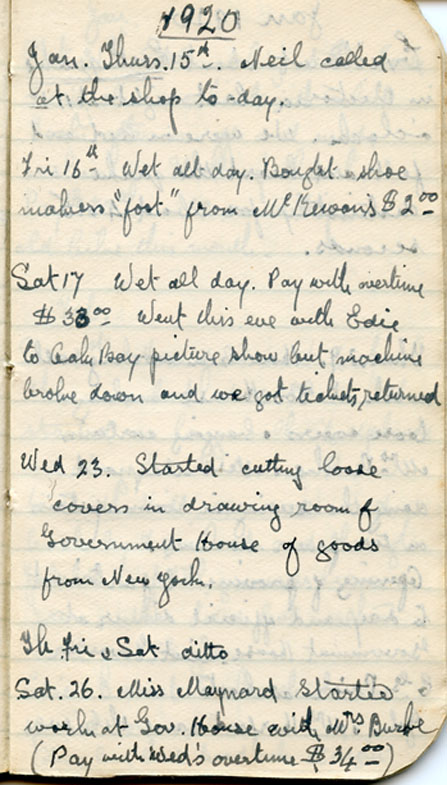 1920
Jan. Thurs. 15th. Neil called
at the shop to-day.
Fri 16th Wet all day. Bought a shoe
makers "foot" from McKewon's $2.00
Sat 17 Wet all day. Pay with overtime
$33.00 Went this eve with Edie
to Oak Bay picture show but machine
broke down and we got tickets returned
Wed 23. Started cutting loose
covers in drawing room of
Government House of goods
from New York.
Th Fri & Sat ditto
Sat. 26. Miss Maynard started
work at Gov. House with Mrs Burke
(Pay with Wed's overtime $34.00)